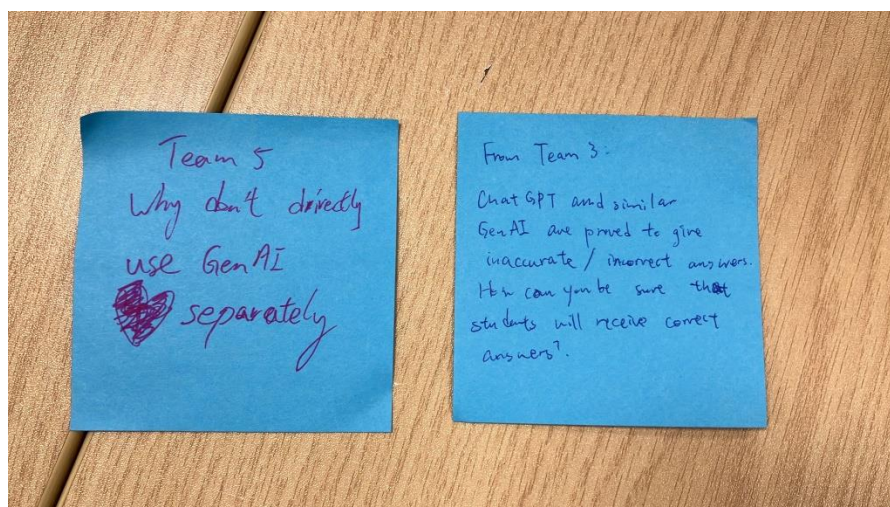 Team 5
Why don't drirectly
use GenAI
separately
From Team 3.
Chat GPT and similar
GenAI are proved to give
inaccurate / incorrect answers.
How can you be sure that
students will receive correct
answers?.